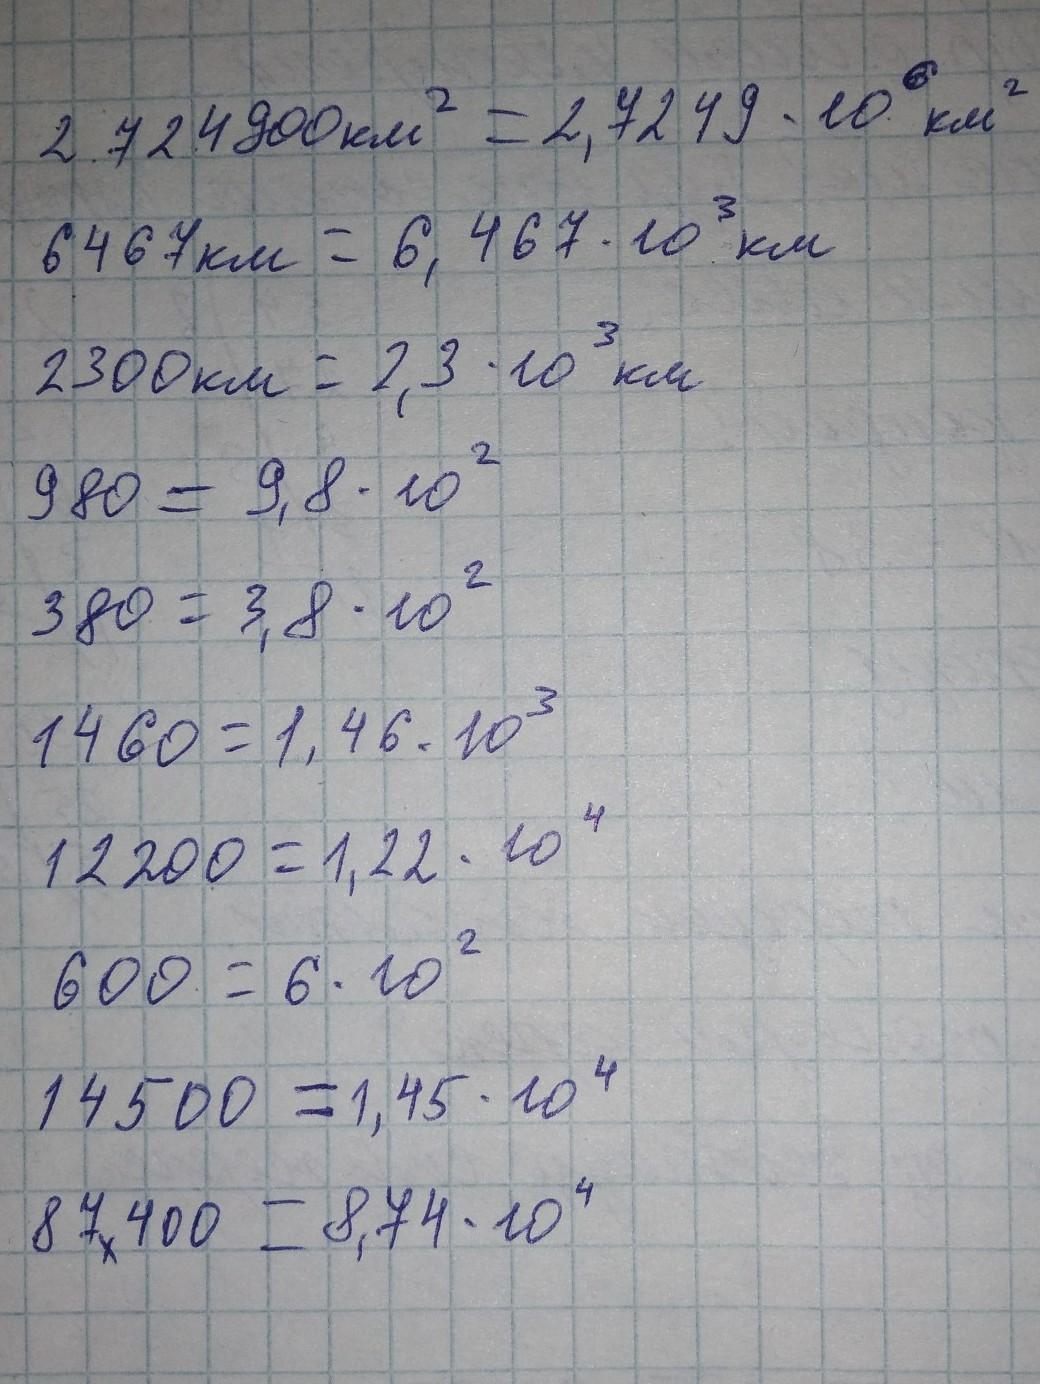 2.724900км² = 2,7249 · 10⁶ км²
6467км = 6,467 · 10³ км
2300км = 2,3 · 10³ км
980 = 9,8 · 10²
380 = 3,8 · 10²
1460 = 1,46 · 10³
12200 = 1,22 · 10⁴
600 = 6 · 10²
14500 = 1,45 · 10⁴
87x400 = 8,74 · 10⁴